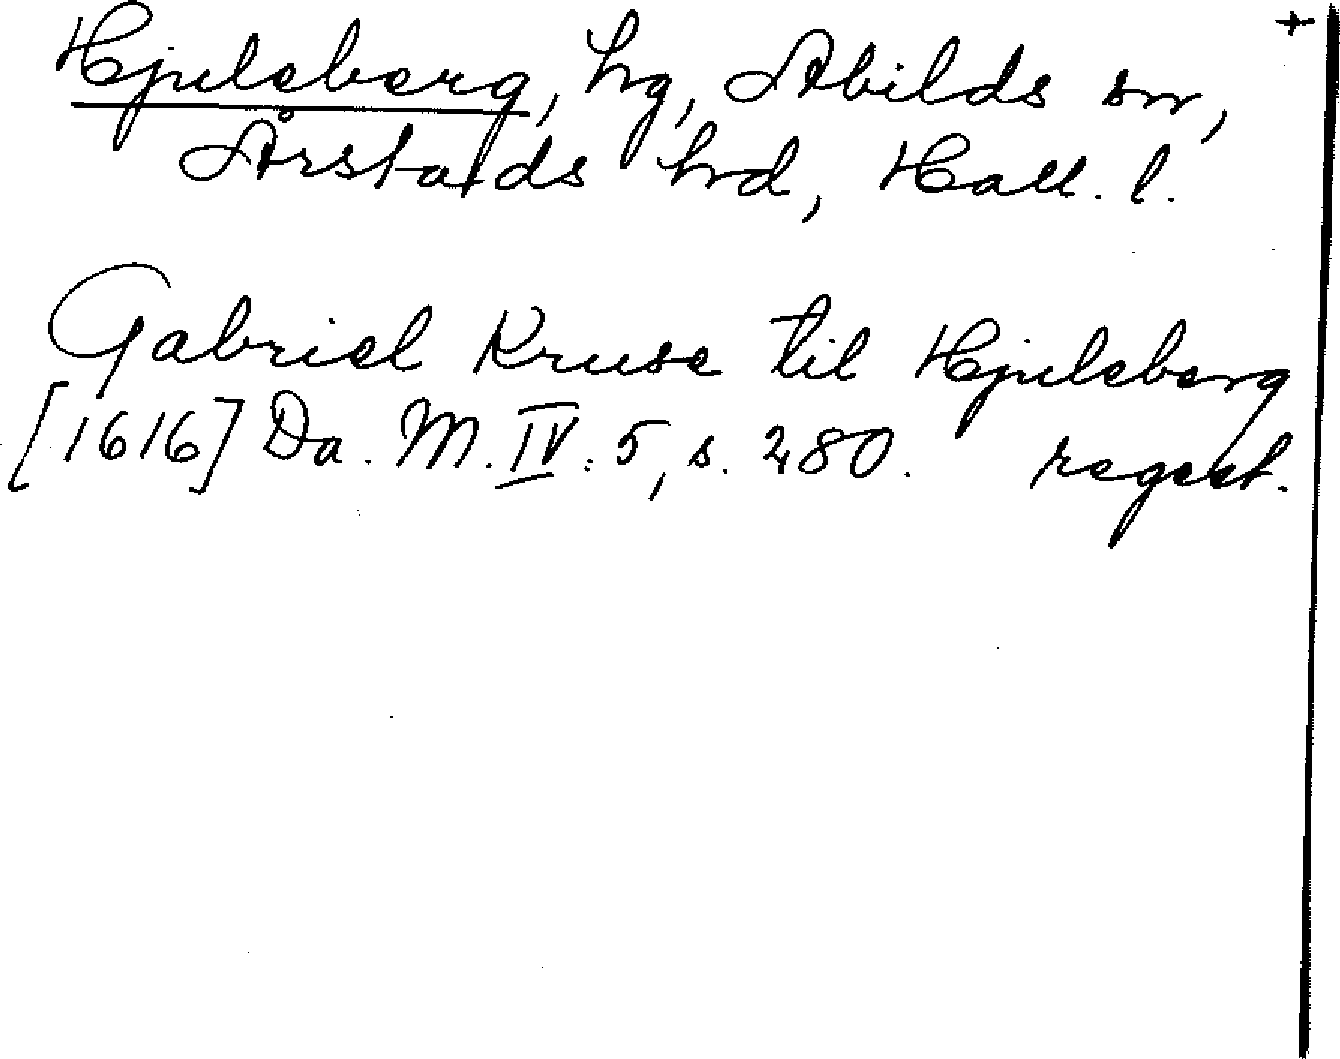 +
Hjuleberg, hg, Abilds sn,
Årstads hrd, Hall. l.
Gabriel Kruse til Hjuleberg
[1616] Da. M. IV: 5, s. 280. regest.